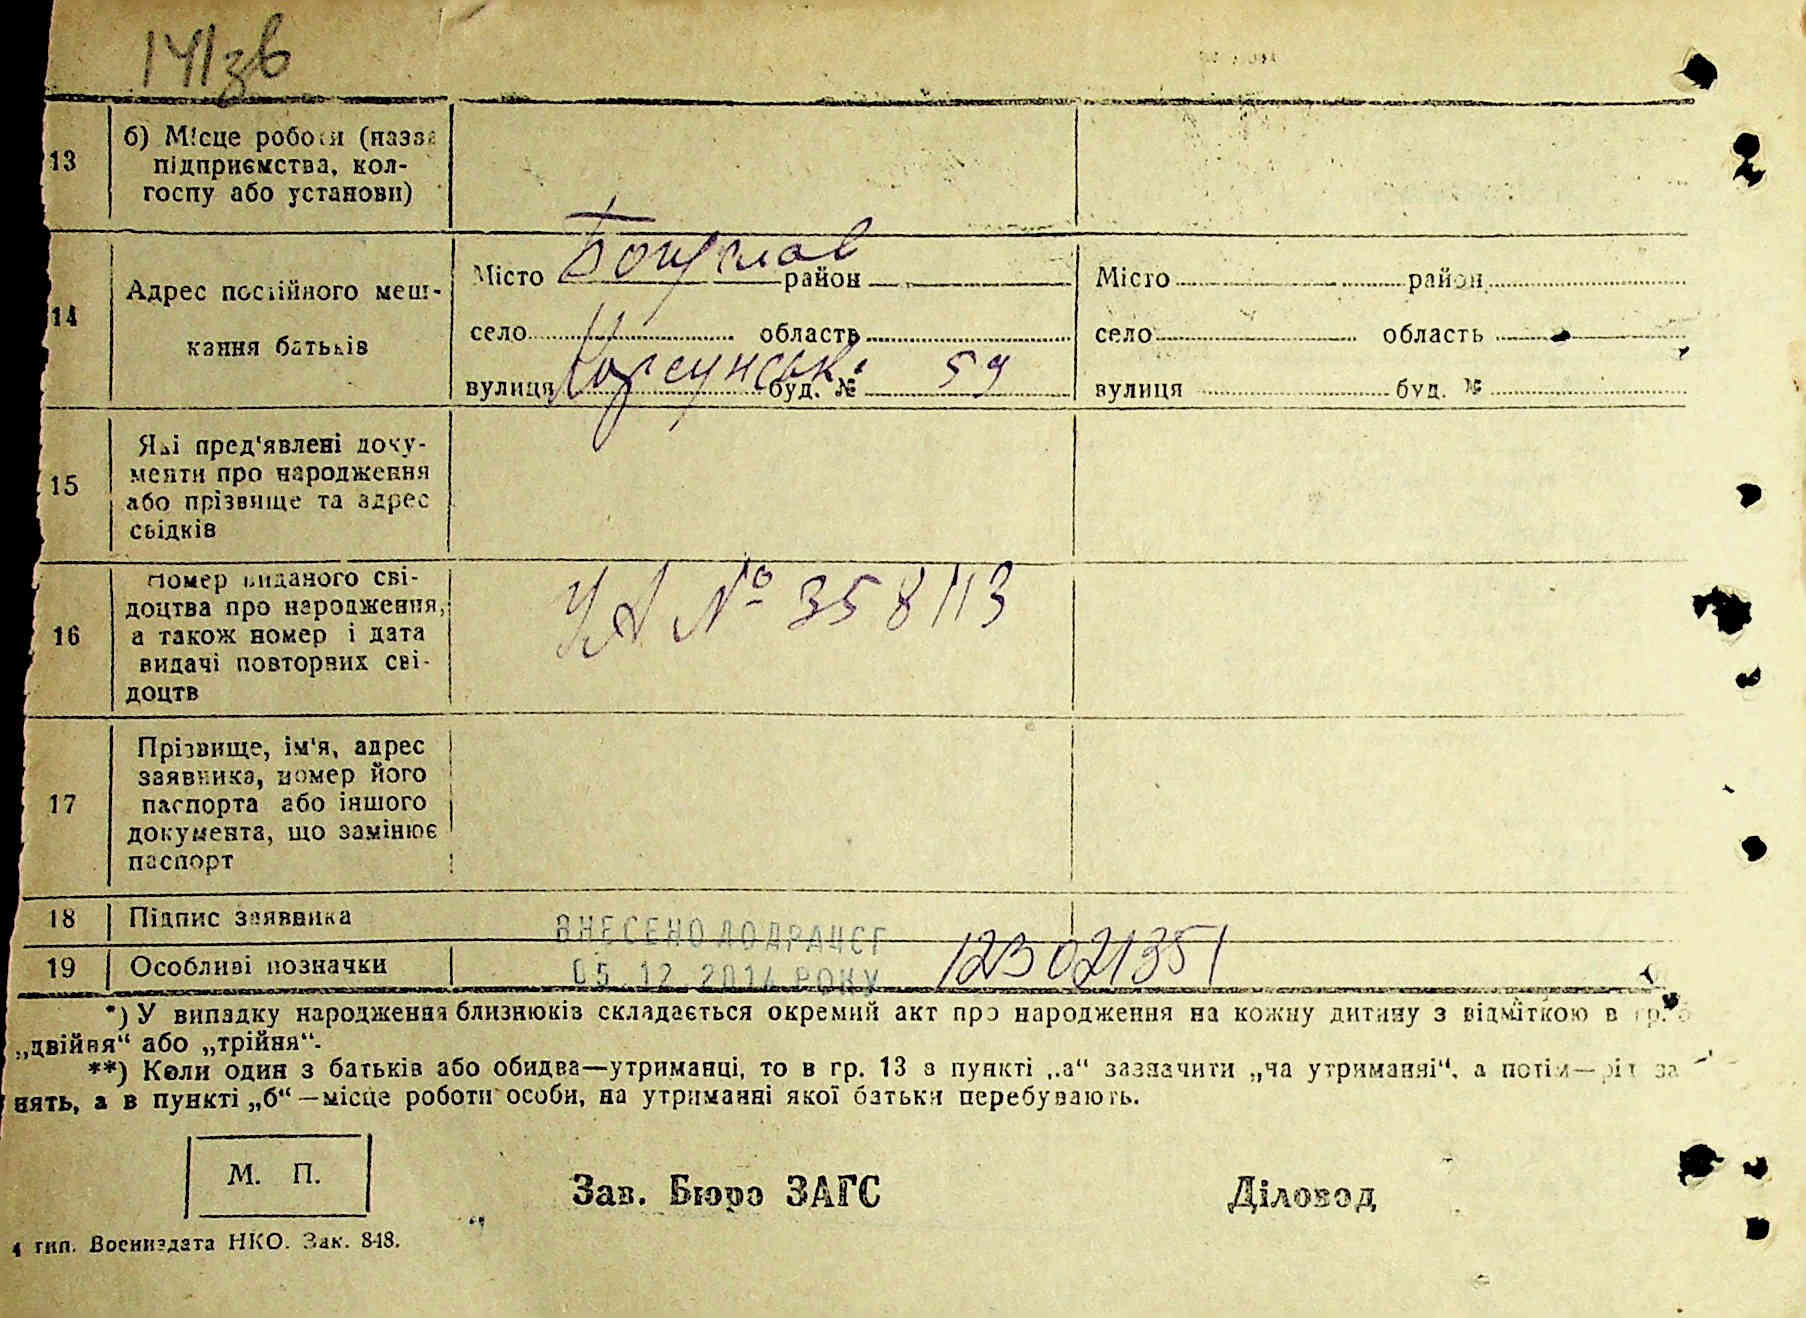 141зв
13
б) Місце роботи (назва
підприємства, кол-
госпу або установи)
14
Адрес постійного меш-
кання батьків
Місто Богуслав район
село область
вулиця Корсунська буд. № 59
Місто район
село область
вулиця буд. №
15
Які пред'явлені доку-
менти про народження
або прізвище та адрес
свідків
16
Номер виданого сві-
доцтва про народження,
а також номер і дата
видачі повторних сві-
доцтв
УА № 358113
17
Прізвище, ім'я, адрес
заявника, номер його
паспорта або іншого
документа, що замінює
паспорт
18 Підпис заявника
ВНЕСЕНО ДО ДРАЦСГ
19 Особливі позначки
05.12.2014 РОКУ 123021351
*) У випадку народження близнюків складається окремий акт про народження на кожну дитину з відміткою в гр.
„двійня“ або „трійня“.
**) Коли один з батьків або обидва—утриманці, то в гр. 13 в пункті „а“ зазначити „на утриманні“, а потім—рід за
нять, а в пункті „б“—місце роботи особи, на утриманні якої батьки перебувають.
М. П.
Зав. Бюро ЗАГС
Діловод
тип. Воениздата НКО. Зак. 848.